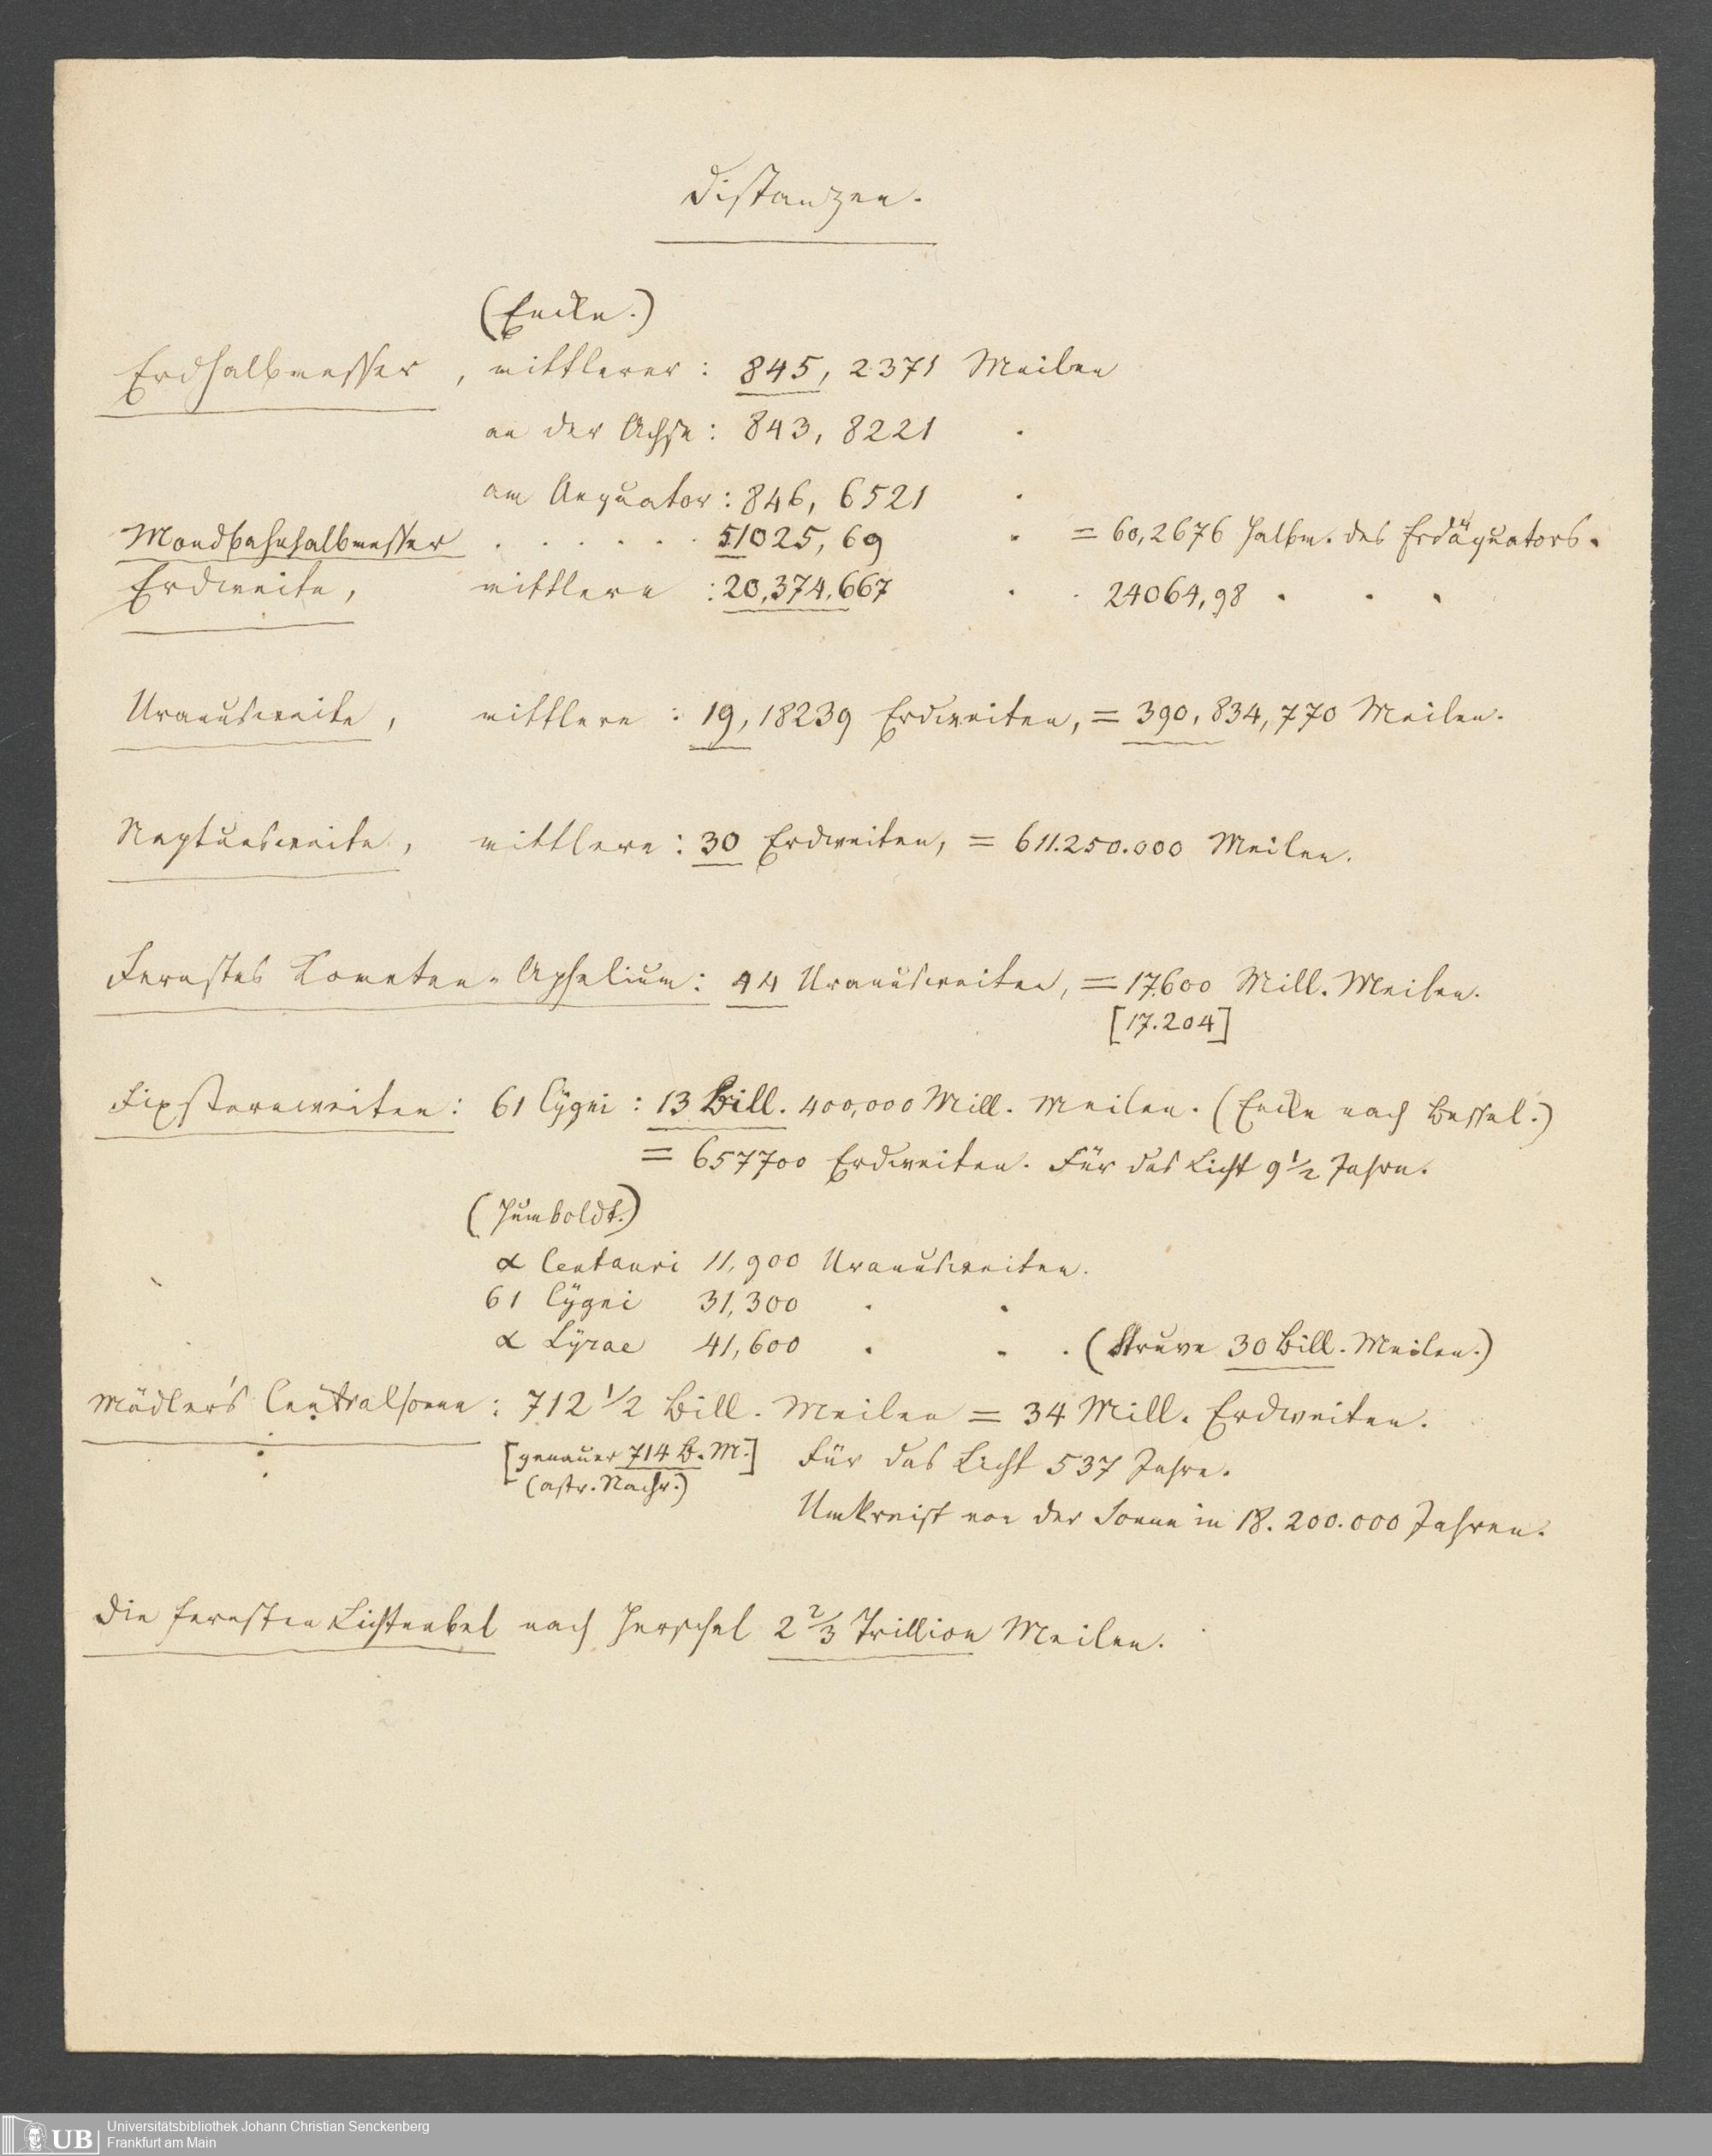 Distanzen.
(Encke.)
Erdhalbmesser, mittlerer: 845,2371 Meilen
an der Achse: 843,8221 "
am Aequator: 846,6521 "
Mondbahnhalbmesser . . . . . . 51025,69 " = 60,2676 Halbm. des Erdäquators.
Erdweite, mittlere: 20,374,667 " " 24064,98 " " "
Uranusweite, mittlere: 19,18239 Erdweiten, = 390,834,770 Meilen.
Neptunsweite, mittlere: 30 Erdweiten, = 611.250.000 Meilen.
Fernstes Kometen-Aphelium: 44 Uranusweiten, = 17.600 Mill. Meilen.
[17.204]
Fixsternweiten: 61 Cÿgni: 13 Bill. 400,000 Mill. Meilen. (Encke nach Bessel.)
= 657700 Erdweiten. Für das Licht 9 1/2 Jahre.
(Humboldt.)
α Centauri 11,900 Uranusweiten.
61 Cÿgni 31,300 " "
α Lÿrae 41,600 " " . (Struve 30 Bill. Meilen.)
Mädler's Centralsonne: 712 1/2 Bill. Meilen = 34 Mill. Erdweiten.
[genauer 714 B. M.] Für das Licht 537 Jahre.
(astr. Nachr.)
Umkreist von der Sonne in 18.200.000 Jahren.
Die fernsten Lichtnebel nach Herschel 2 2/3 Trillion Meilen.
UB
Universitätsbibliothek Johann Christian Senckenberg
Frankfurt am Main